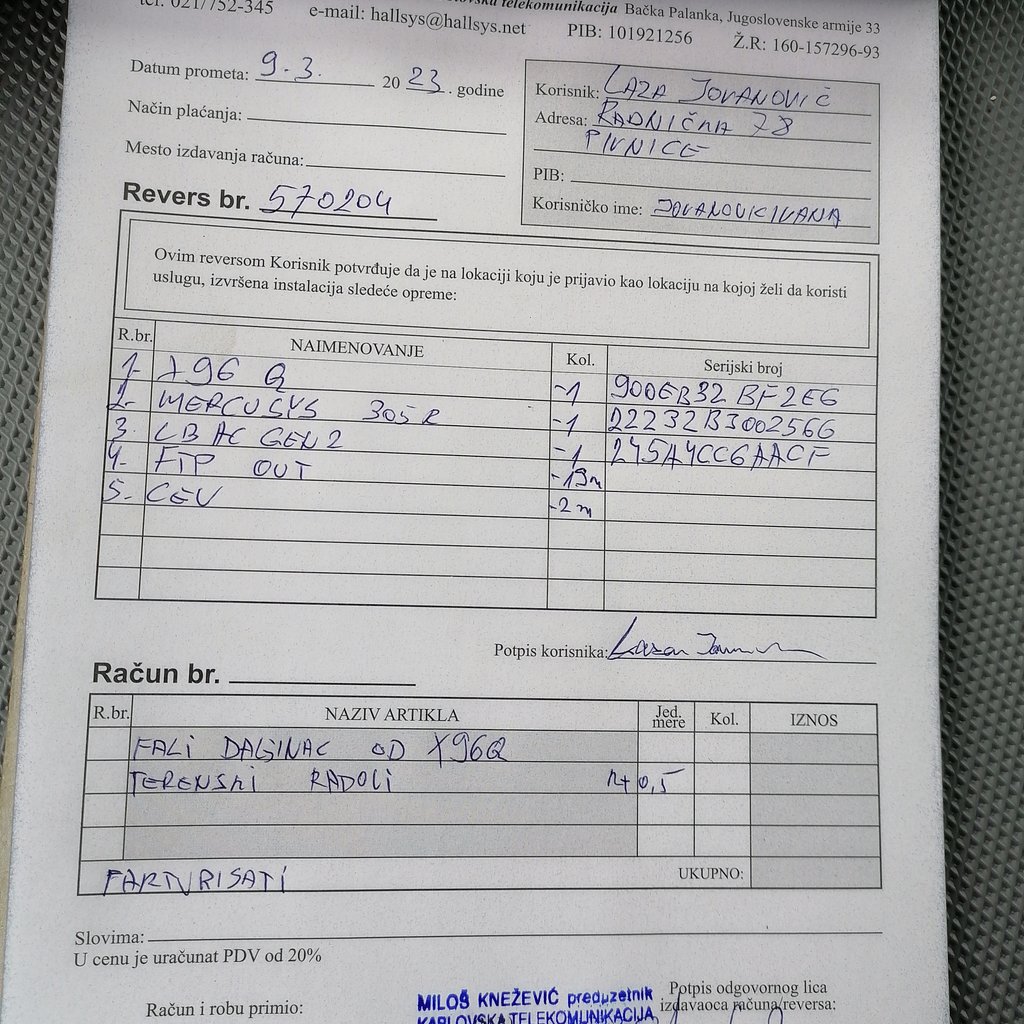 tel. 021/752-345 telekomunikacija Bačka Palanka, Jugoslovenske armije 33
e-mail: hallsys@hallsys.net PIB: 101921256 Ž.R: 160-157296-93
Datum prometa: 9.3. 2023. godine
Način plaćanja:
Mesto izdavanja računa:
Revers br. 570204
Korisnik: LAZA JOVANOVIĆ
Adresa: RADNIČKA 78
PIVNICE
PIB:
Korisničko ime: JOVANOVICIVANA
Ovim reversom Korisnik potvrđuje da je na lokaciji koju je prijavio kao lokaciju na kojoj želi da koristi
uslugu, izvršena instalacija sledeće opreme:
R.br. NAIMENOVANJE Kol. Serijski broj
1. X96 Q -1 900EB32BF2E6
2. MERCUSYS 305R -1 22232B3002566
3. LB AC GEN2 -1 245A4CC6AACF
4. FTP OUT -19m
5. CEV -2m
Potpis korisnika:
Račun br.
R.br. NAZIV ARTIKLA Jed. mere Kol. IZNOS
FALI DALJINAC OD X96Q
TERENSKI RADOLI 1+0,5
FAKTURISATI UKUPNO:
Slovima:
U cenu je uračunat PDV od 20%
Račun i robu primio:
MILOŠ KNEŽEVIĆ preduzetnik
KARLOVSKA TELEKOMUNIKACIJA
Potpis odgovornog lica
izdavaoca računa/reversa: